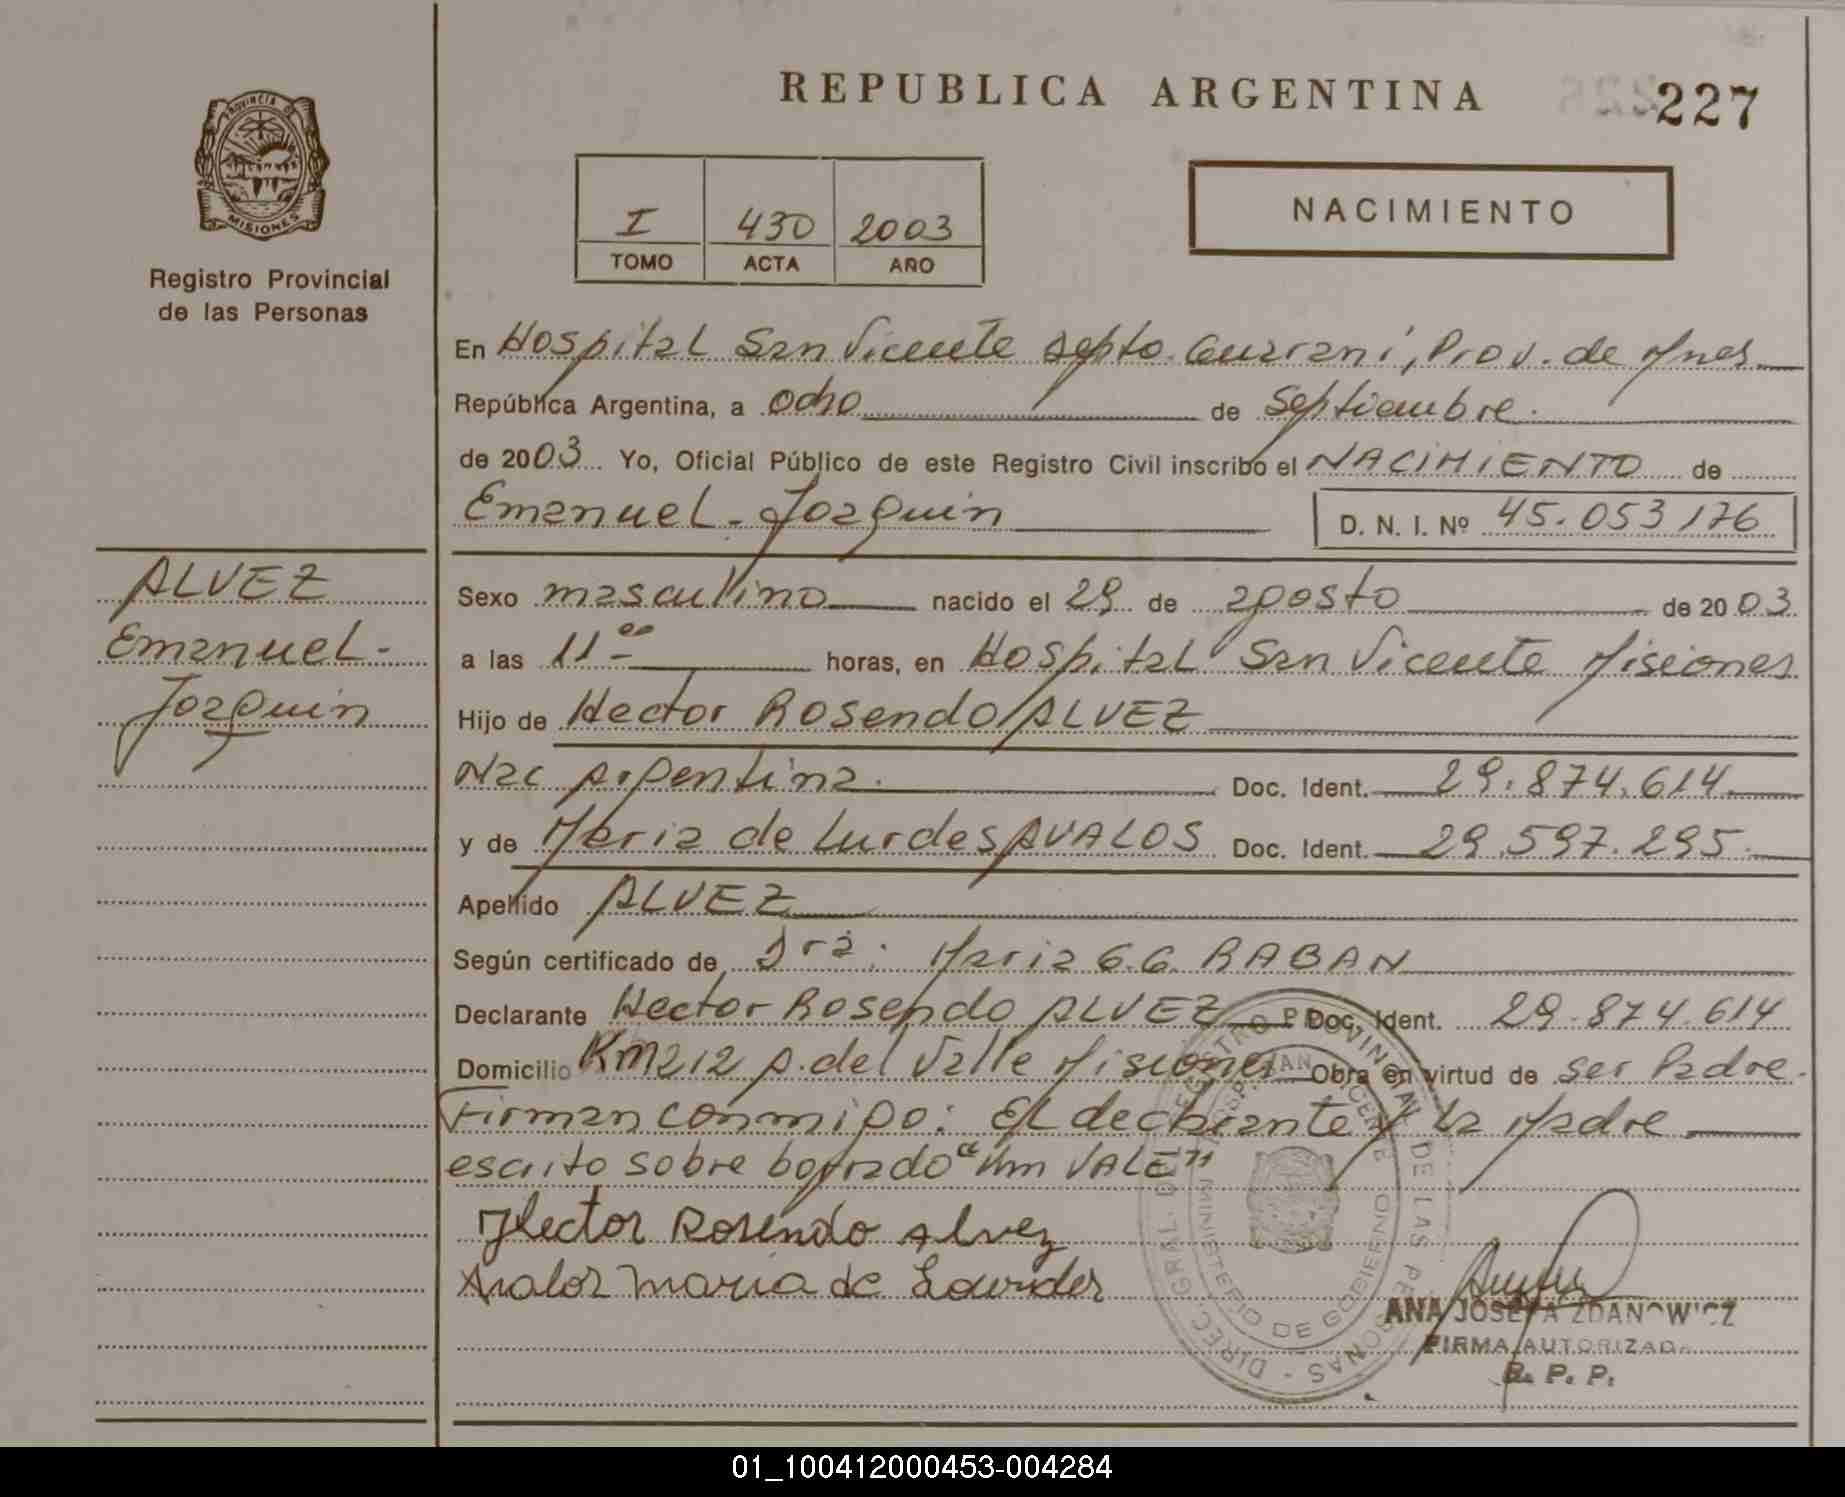 REPUBLICA ARGENTINA
227
PROVINCIA DE
MISIONES
Registro Provincial
de las Personas
I 430 2003
TOMO ACTA AÑO
NACIMIENTO
En Hospital San Vicente Depto. Guarani, Prov. de Mnes.
República Argentina, a ocho de Septiembre.
de 2003 Yo, Oficial Público de este Registro Civil inscribo el NACIMIENTO de
Emanuel - Joaquin D. N. I. Nº 45.053 176
ALVEZ
Emanuel -
Joaquin
Sexo masculino nacido el 29 de agosto de 2003
a las 11 00 horas, en Hospital San Vicente Misiones
Hijo de Hector Rosendo ALVEZ
Nac Argentina. Doc. Ident. 29.874.614
y de Maria de Lurdes AVALOS Doc. Ident. 29.597.295
Apellido ALVEZ
Según certificado de Dra. Maria G.G. RABAN
Declarante Hector Rosendo ALVEZ Doc. Ident. 29.874.614
Domicilio Km 212 A. del Valle Misiones Obra en virtud de ser Padre.
Firman conmigo: El declarante y la Madre
escrito sobre borrado "Km VALE"
Hector Rosendo Alvez
Avalos Maria de Lourdes
DIREC. GRAL. DE REGISTRO PROVINCIAL DE LAS PERSONAS
HOSP. SAN VICENTE
MINISTERIO DE GOBIERNO
ANA JOSEFA ZDANOWICZ
FIRMA AUTORIZADA
R. P. P.
01_100412000453-004284